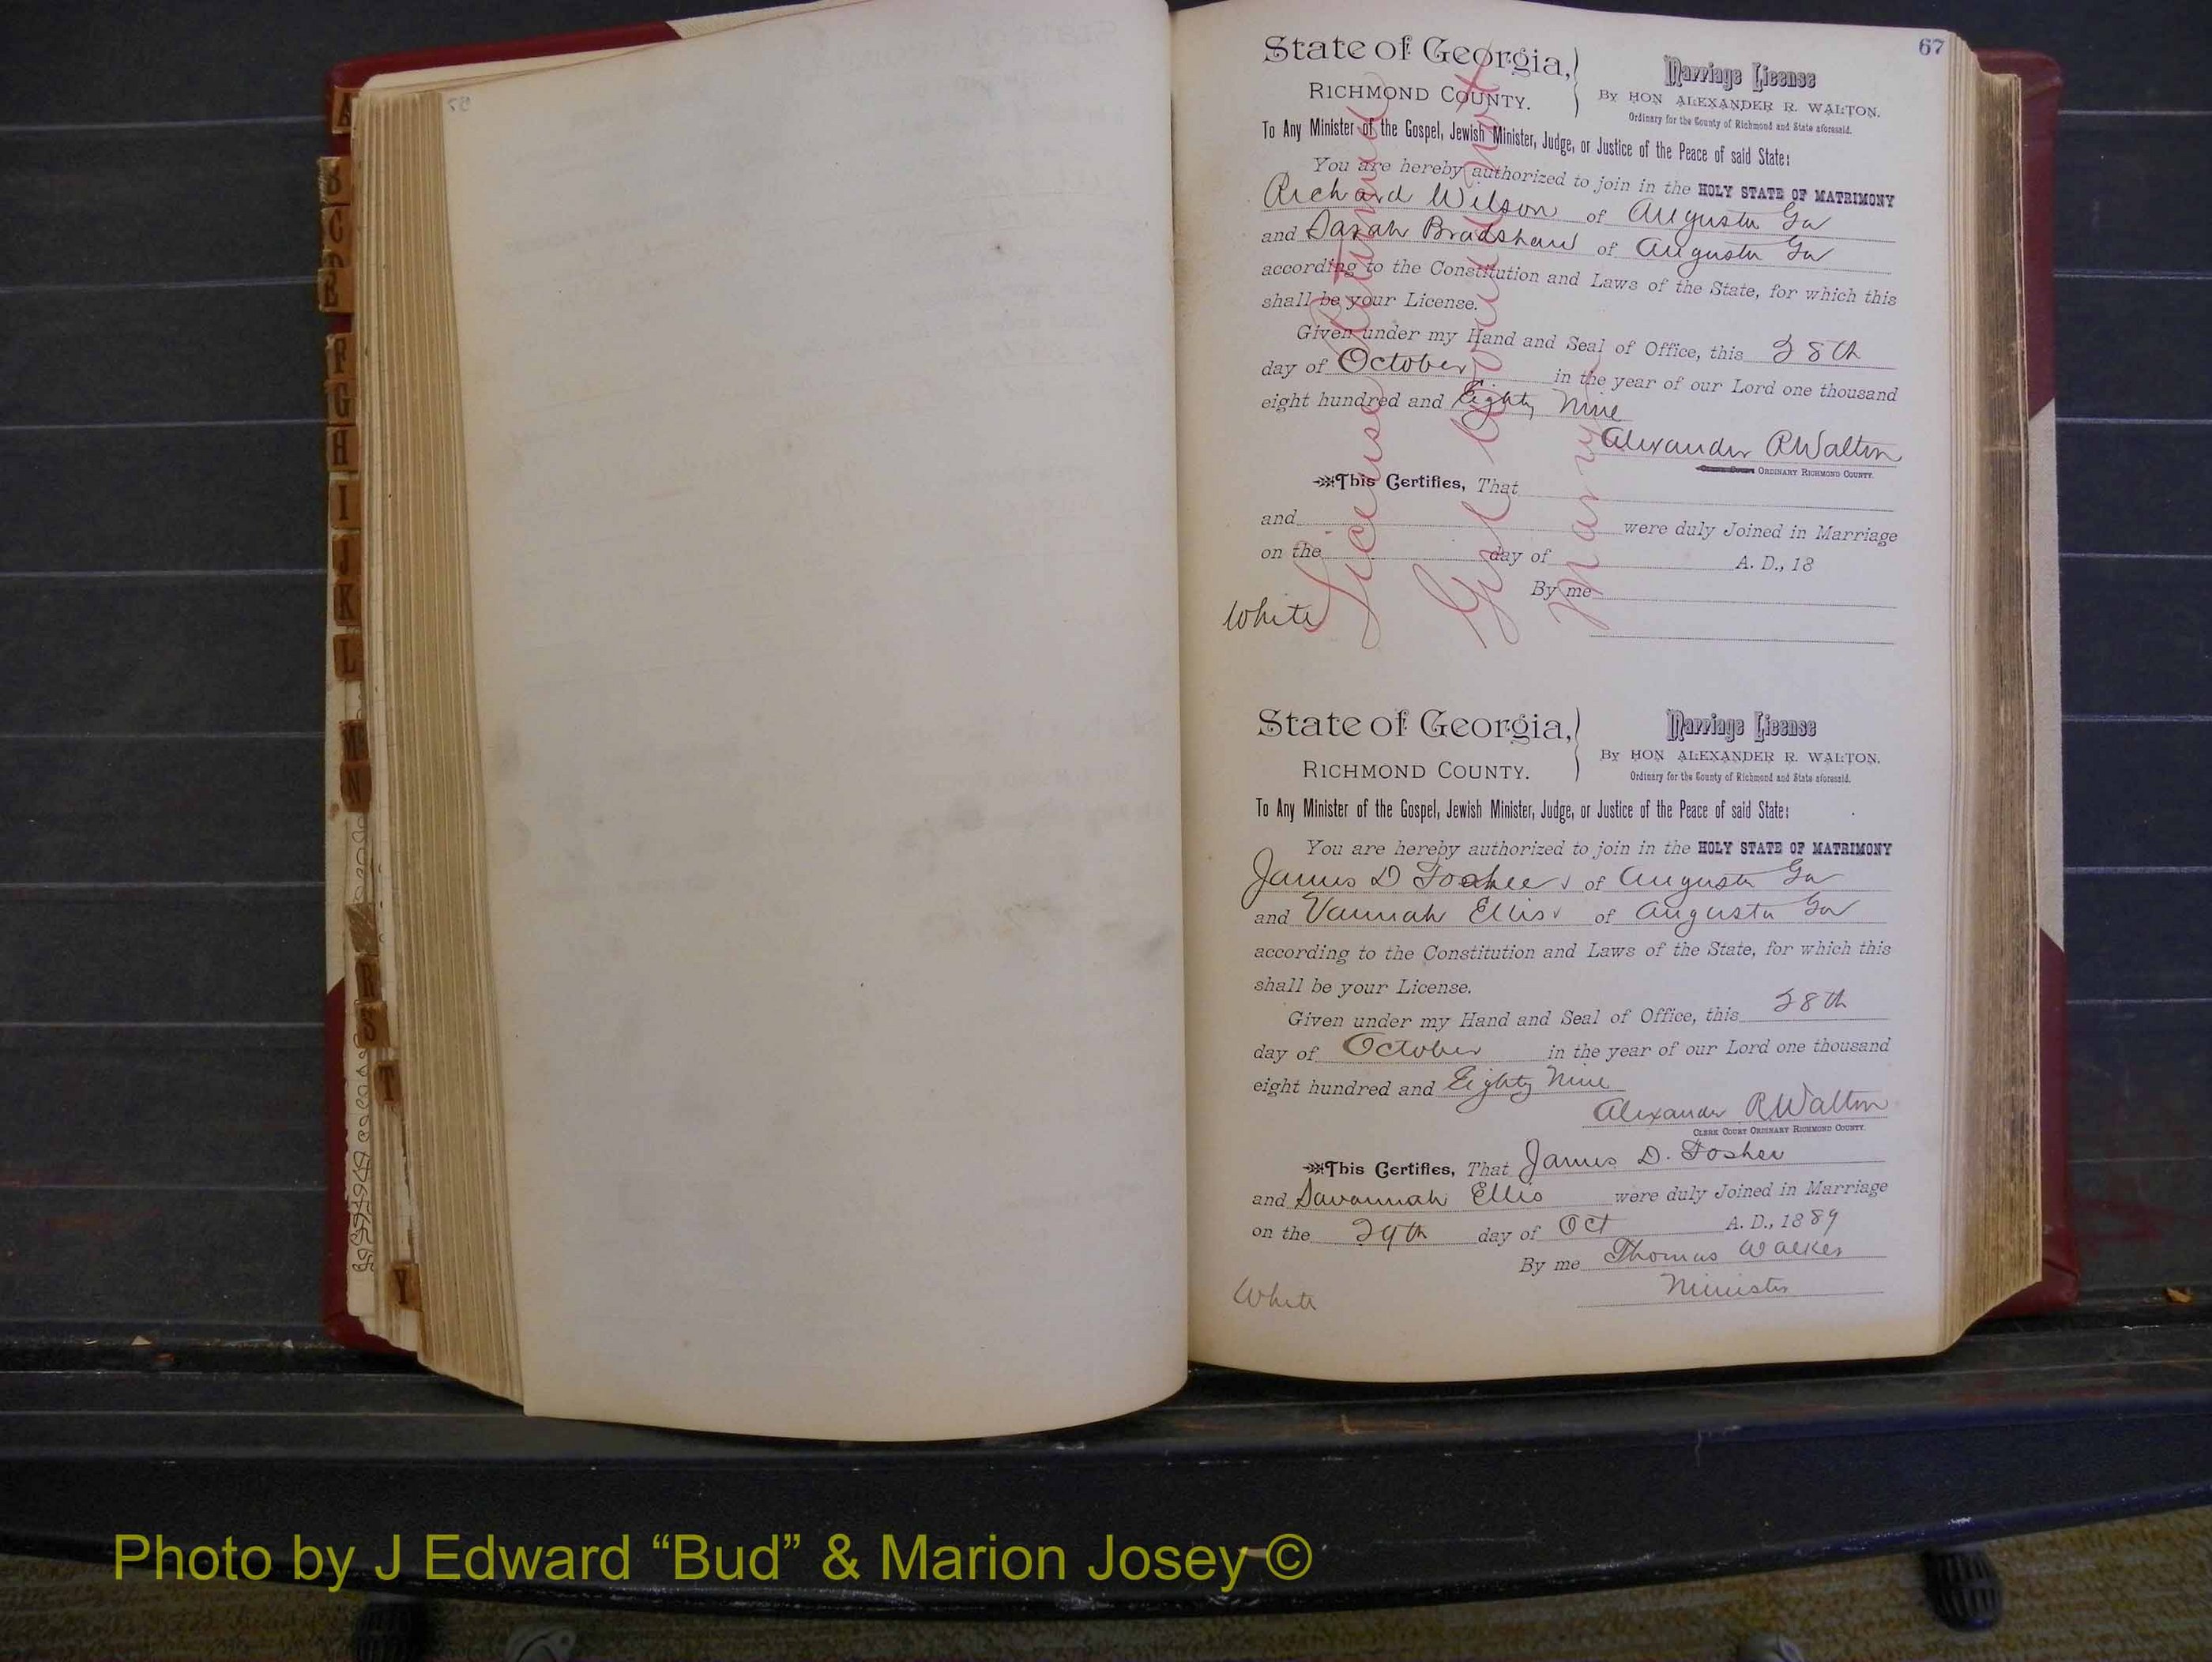 67
State of Georgia,
RICHMOND COUNTY.
Marriage License
By HON ALEXANDER R. WALTON.
Ordinary for the County of Richmond and State aforesaid.
To Any Minister of the Gospel, Jewish Minister, Judge, or Justice of the Peace of said State:
You are hereby authorized to join in the HOLY STATE OF MATRIMONY
Richard Wilson of Augusta Ga
and Sarah Bradshaw of Augusta Ga
according to the Constitution and Laws of the State, for which this
shall be your License.
Given under my Hand and Seal of Office, this 28th
day of October in the year of our Lord one thousand
eight hundred and Eighty Nine
Alexander R Walton
ORDINARY RICHMOND COUNTY.
This Certifies, That
and were duly Joined in Marriage
on the day of A. D., 18
By me
White
License Returned
Girl would not
Marry
State of Georgia,
RICHMOND COUNTY.
Marriage License
By HON ALEXANDER R. WALTON.
Ordinary for the County of Richmond and State aforesaid.
To Any Minister of the Gospel, Jewish Minister, Judge, or Justice of the Peace of said State:
You are hereby authorized to join in the HOLY STATE OF MATRIMONY
James D Foshee of Augusta Ga
and Vannah Ellis of Augusta Ga
according to the Constitution and Laws of the State, for which this
shall be your License.
Given under my Hand and Seal of Office, this 28th
day of October in the year of our Lord one thousand
eight hundred and Eighty Nine
Alexander R Walton
CLERK COURT ORDINARY RICHMOND COUNTY.
This Certifies, That James D. Foshee
and Savannah Ellis were duly Joined in Marriage
on the 29th day of Oct A. D., 1889
By me Thomas Walker
Minister
White
A
B
C
D
E
F
G
H
I
J
K
L
M
N
R
S
T
Y
Photo by J Edward “Bud” & Marion Josey ©